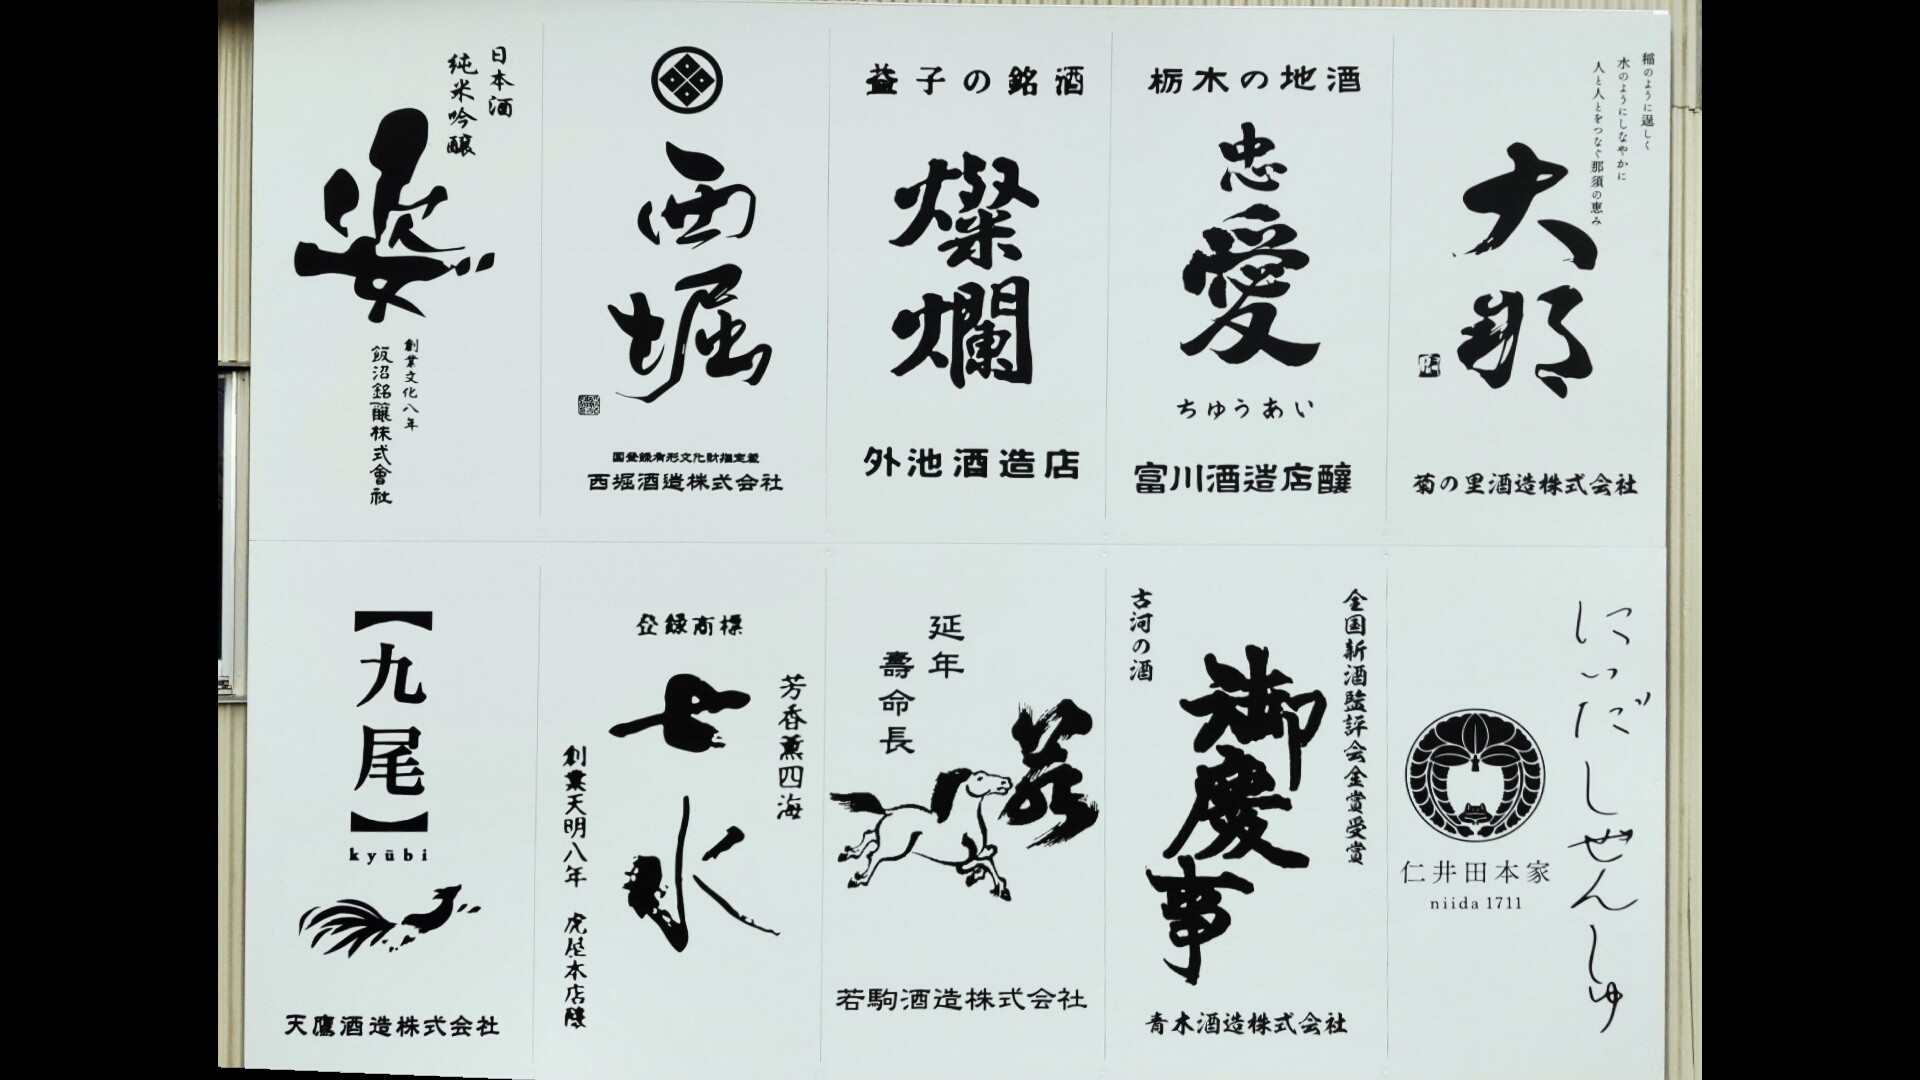 日本酒
純米吟醸
姿
創業文化八年
飯沼銘醸株式會社
西堀
国登録有形文化財指定蔵
西堀酒造株式会社
益子の銘酒
燦爛
外池酒造店
栃木の地酒
忠愛
ちゅうあい
富川酒造店醸
稲のように逞しく
水のようにしなやかに
人と人とをつなぐ那須の恵み
大那
菊の里酒造株式会社
【九尾】
kyūbi
天鷹酒造株式会社
登録商標
芳香薫四海
七水
創業天明八年 虎屋本店醸
延年
壽命長
若
若駒酒造株式会社
全国新酒鑑評会金賞受賞
御慶事
古河の酒
青木酒造株式会社
にいだしぜんしゅ
仁井田本家
niida 1711